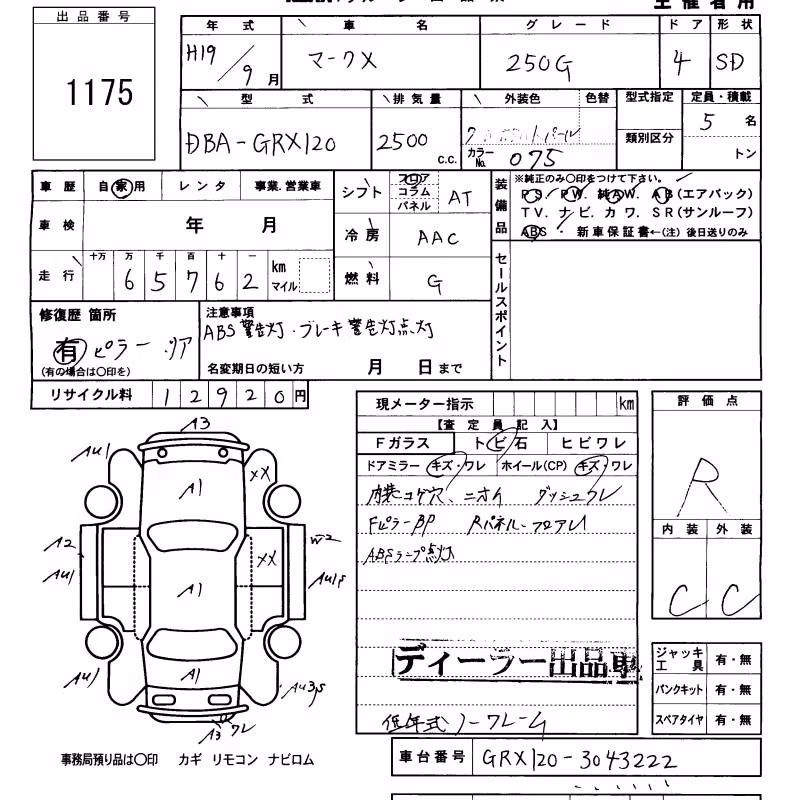 出品番号
1175
年式 車名 グレード ドア 形状
H19/9月 マークX 250G 4 SD
型式 排気量 外装色 色替 型式指定 定員・積載
DBA-GRX120 2500 c.c. パール 類別区分 5名
カラーNo. 075 トン
車歴 自家用 レンタ 事業.営業車
車検 年 月
走行 十万 万 千 百 十 一 km マイル
6 5 7 6 2
シフト フロア コラム パネル AT
冷房 AAC
燃料 G
装備品 ※純正のみ〇印をつけて下さい。
PS. PW. 純AW. AB(エアバック)
TV. ナビ. カワ. SR(サンルーフ)
ABS・新車保証書←(注)後日送りのみ
セールスポイント
修復歴 箇所
有 ピラー・リア
(有の場合は〇印を)
注意事項
ABS警告灯・ブレーキ警告灯点灯
名変期日の短い方 月 日まで
リサイクル料 12920円
現メーター指示 km
【査定員記入】
Fガラス トビ石 ヒビワレ
ドアミラー キズ・ワレ ホイール(CP) キズ・ワレ
内装コゲ穴、ニオイ ダッシュワレ
FピラーBP Rパネル・フロアレ
ABSランプ点灯
ディーラー出品車
低年式ノークレーム
評価点
R
内装 外装
C C
ジャッキ工具 有・無
パンクキット 有・無
スペアタイヤ 有・無
A3
AU1
XX
A1
A2
W2
AU1
XX
A1
AU1S
AU1
A1
AU3S
A3 ワレ
事務局預り品は〇印 カギ リモコン ナビロム
車台番号 GRX120-3043222